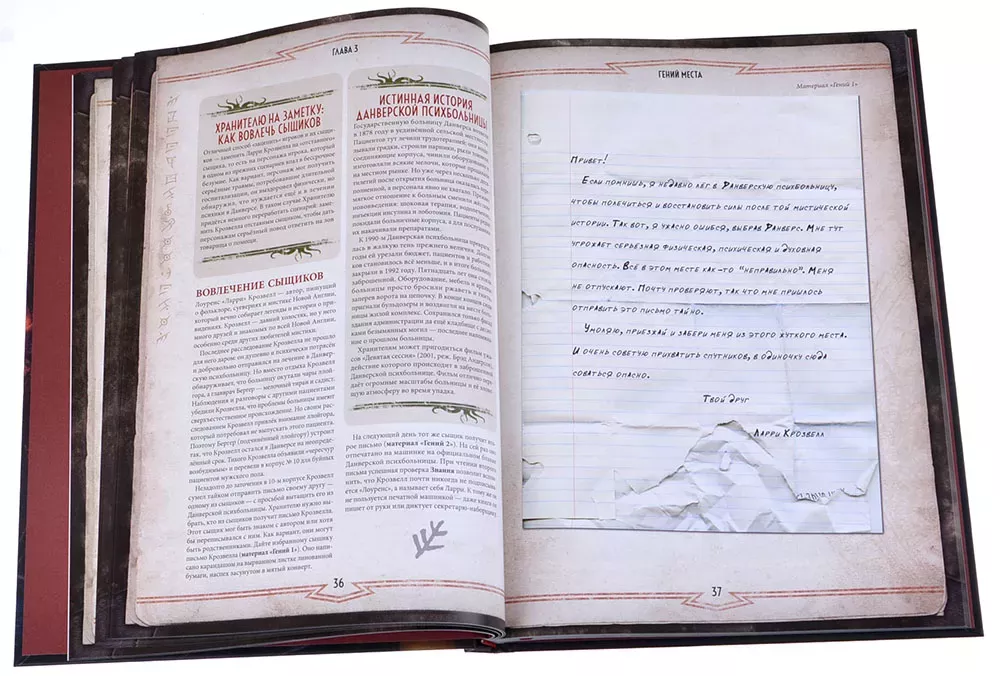 ГЛАВА 3
ХРАНИТЕЛЮ НА ЗАМЕТКУ:
КАК ВОВЛЕЧЬ СЫЩИКОВ
Отличный способ «зацепить» игроков и их сыщиков
— заменить Ларри Крозвелла на «отставного»
сыщика, то есть на персонажа игрока, который
в одном из прежних сценариев впал в бессрочное
безумие. Как вариант, персонаж мог получить
серьёзные травмы, потребовавшие длительной
госпитализации, он выздоровел физически, но
обнаружил, что нуждается ещё и в лечении
психики в Данверсе. В таком случае Хранителю
придётся немного переработать сценарий: заменить
Крозвелла отставным сыщиком, чтобы дать
персонажам серьёзный повод ответить на зов
товарища о помощи.
ВОВЛЕЧЕНИЕ СЫЩИКОВ
Лоуренс «Ларри» Крозвелл — автор, пишущий
о фольклоре, суевериях и мистике Новой Англии,
который вечно собирает легенды и истории о привидениях.
Крозвелл — давний холостяк, но у него
много друзей и знакомых по всей Новой Англии,
особенно среди других любителей мистики.
Последнее расследование Крозвелла не прошло
для него даром: он душевно и психически потрясён
и добровольно отправился на лечение в Данверскую
психбольницу. Но вместо отдыха Крозвелл
обнаруживает, что больницу окутали чары
а главврач Бергер — мелочный тиран и садист.
Наблюдения и разговоры с другими пациентами
убедили Крозвелла, что проблемы больницы имеют
сверхъестественное происхождение. Но своим расследованием
Крозвелл привлёк внимание ллойгора,
который потребовал не выпускать этого пациента.
Поэтому Бергер (подчинённый ллойгору) устроит
так, что Крозвелл остался в Данверсе на неопределённый
срок. Тихого Крозвелла объявили «чересчур
возбудимым» и перевели в корпус № 10 для буйных
пациентов мужского пола.
Незадолго до заточения в 10-м корпусе Крозвелл
сумел тайком отправить письмо своему другу —
одному из сыщиков — с просьбой вытащить его из
Данверской психбольницы. Хранителю нужно выбрать,
кто из сыщиков получит письмо Крозвелла.
Этот сыщик мог быть знаком с автором или хотя
бы переписывался с ним. Как вариант, они могут
быть родственниками. Дайте избранному сыщику
письмо Крозвелла (материал «Гений 1»). Оно написано
карандашом на вырванном листке линованной
бумаги, наспех засунутом в мятый конверт.
ИСТИННАЯ ИСТОРИЯ
ДАНВЕРСКОЙ ПСИХБОЛЬНИЦЫ
Государственную больницу Данверса
в 1878 году в уединённой сельской
Пациентов тут лечили трудотерапией: они
вывали грядки, строили парники, рыли
соединяющие корпуса, чинили
изготовляли всякие мелочи, которые
на местном рынке. Но уже через несколько
тилетий после открытия больница оказалась
полненной, а персонала явно не хватало.
мягкое отношение к больным сменили
нововведения: шоковая терапия,
инъекции инсулина и лоботомия. Пациенты
покидали больничные корпуса, а для
их накачивали препаратами.
К 1990-м Данверская психбольница
лась в жалкую тень прежнего величия.
годы ей урезали бюджет, пациентов и
ков становилось всё меньше, и в итоге
закрыли в 1992 году. Пятнадцать лет она стояла
заброшенной. Оборудование, мебель и
больницы просто бросили ржаветь и гнить,
заперев ворота на цепочку. В конце концов
пригнали бульдозеры и возвели на месте
ницы жилой комплекс. Сохранился только
здания администрации да ещё кладбище с
ми безымянных могил — последнее
о прошлом больницы.
Хранителям может пригодиться фильм
сов «Девятая сессия» (2001, реж. Брэд Андерсон),
действие которого происходит в заброшенной
Данверской психбольнице. Фильм отлично
даёт огромные масштабы больницы и её
щую атмосферу во время упадка.
На следующий день тот же сыщик получит
рое письмо (материал «Гений 2»). На сей раз
отпечатано на машинке на официальном бланке
Данверской психбольницы. При чтении второго
письма успешная проверка Знания позволит
нить, что Крозвелл почти никогда не
ся «Лоуренс», а называет себя Ларри. К тому же он
не пользуется печатной машинкой — даже книги он
пишет от руки или диктует секретарю-наборщику.
36
ГЕНИЙ МЕСТА
Материал «Гений 1»
Привет!
Если помнишь, я недавно лёг в Данверскую психбольницу,
чтобы полечиться и восстановить силы после той мистической
истории. Так вот, я ужасно ошибся, выбрав Данверс. Мне тут
угрожает серьёзная физическая, психическая и духовная
опасность. Всё в этом месте как-то "неправильно". Меня
не отпускают. Почту проверяют, так что мне пришлось
отправить это письмо тайно.
Умоляю, приезжай и забери меня из этого жуткого места.
И очень советую прихватить спутников, в одиночку сюда
соваться опасно.
Твой друг
Ларри Крозвелл
37